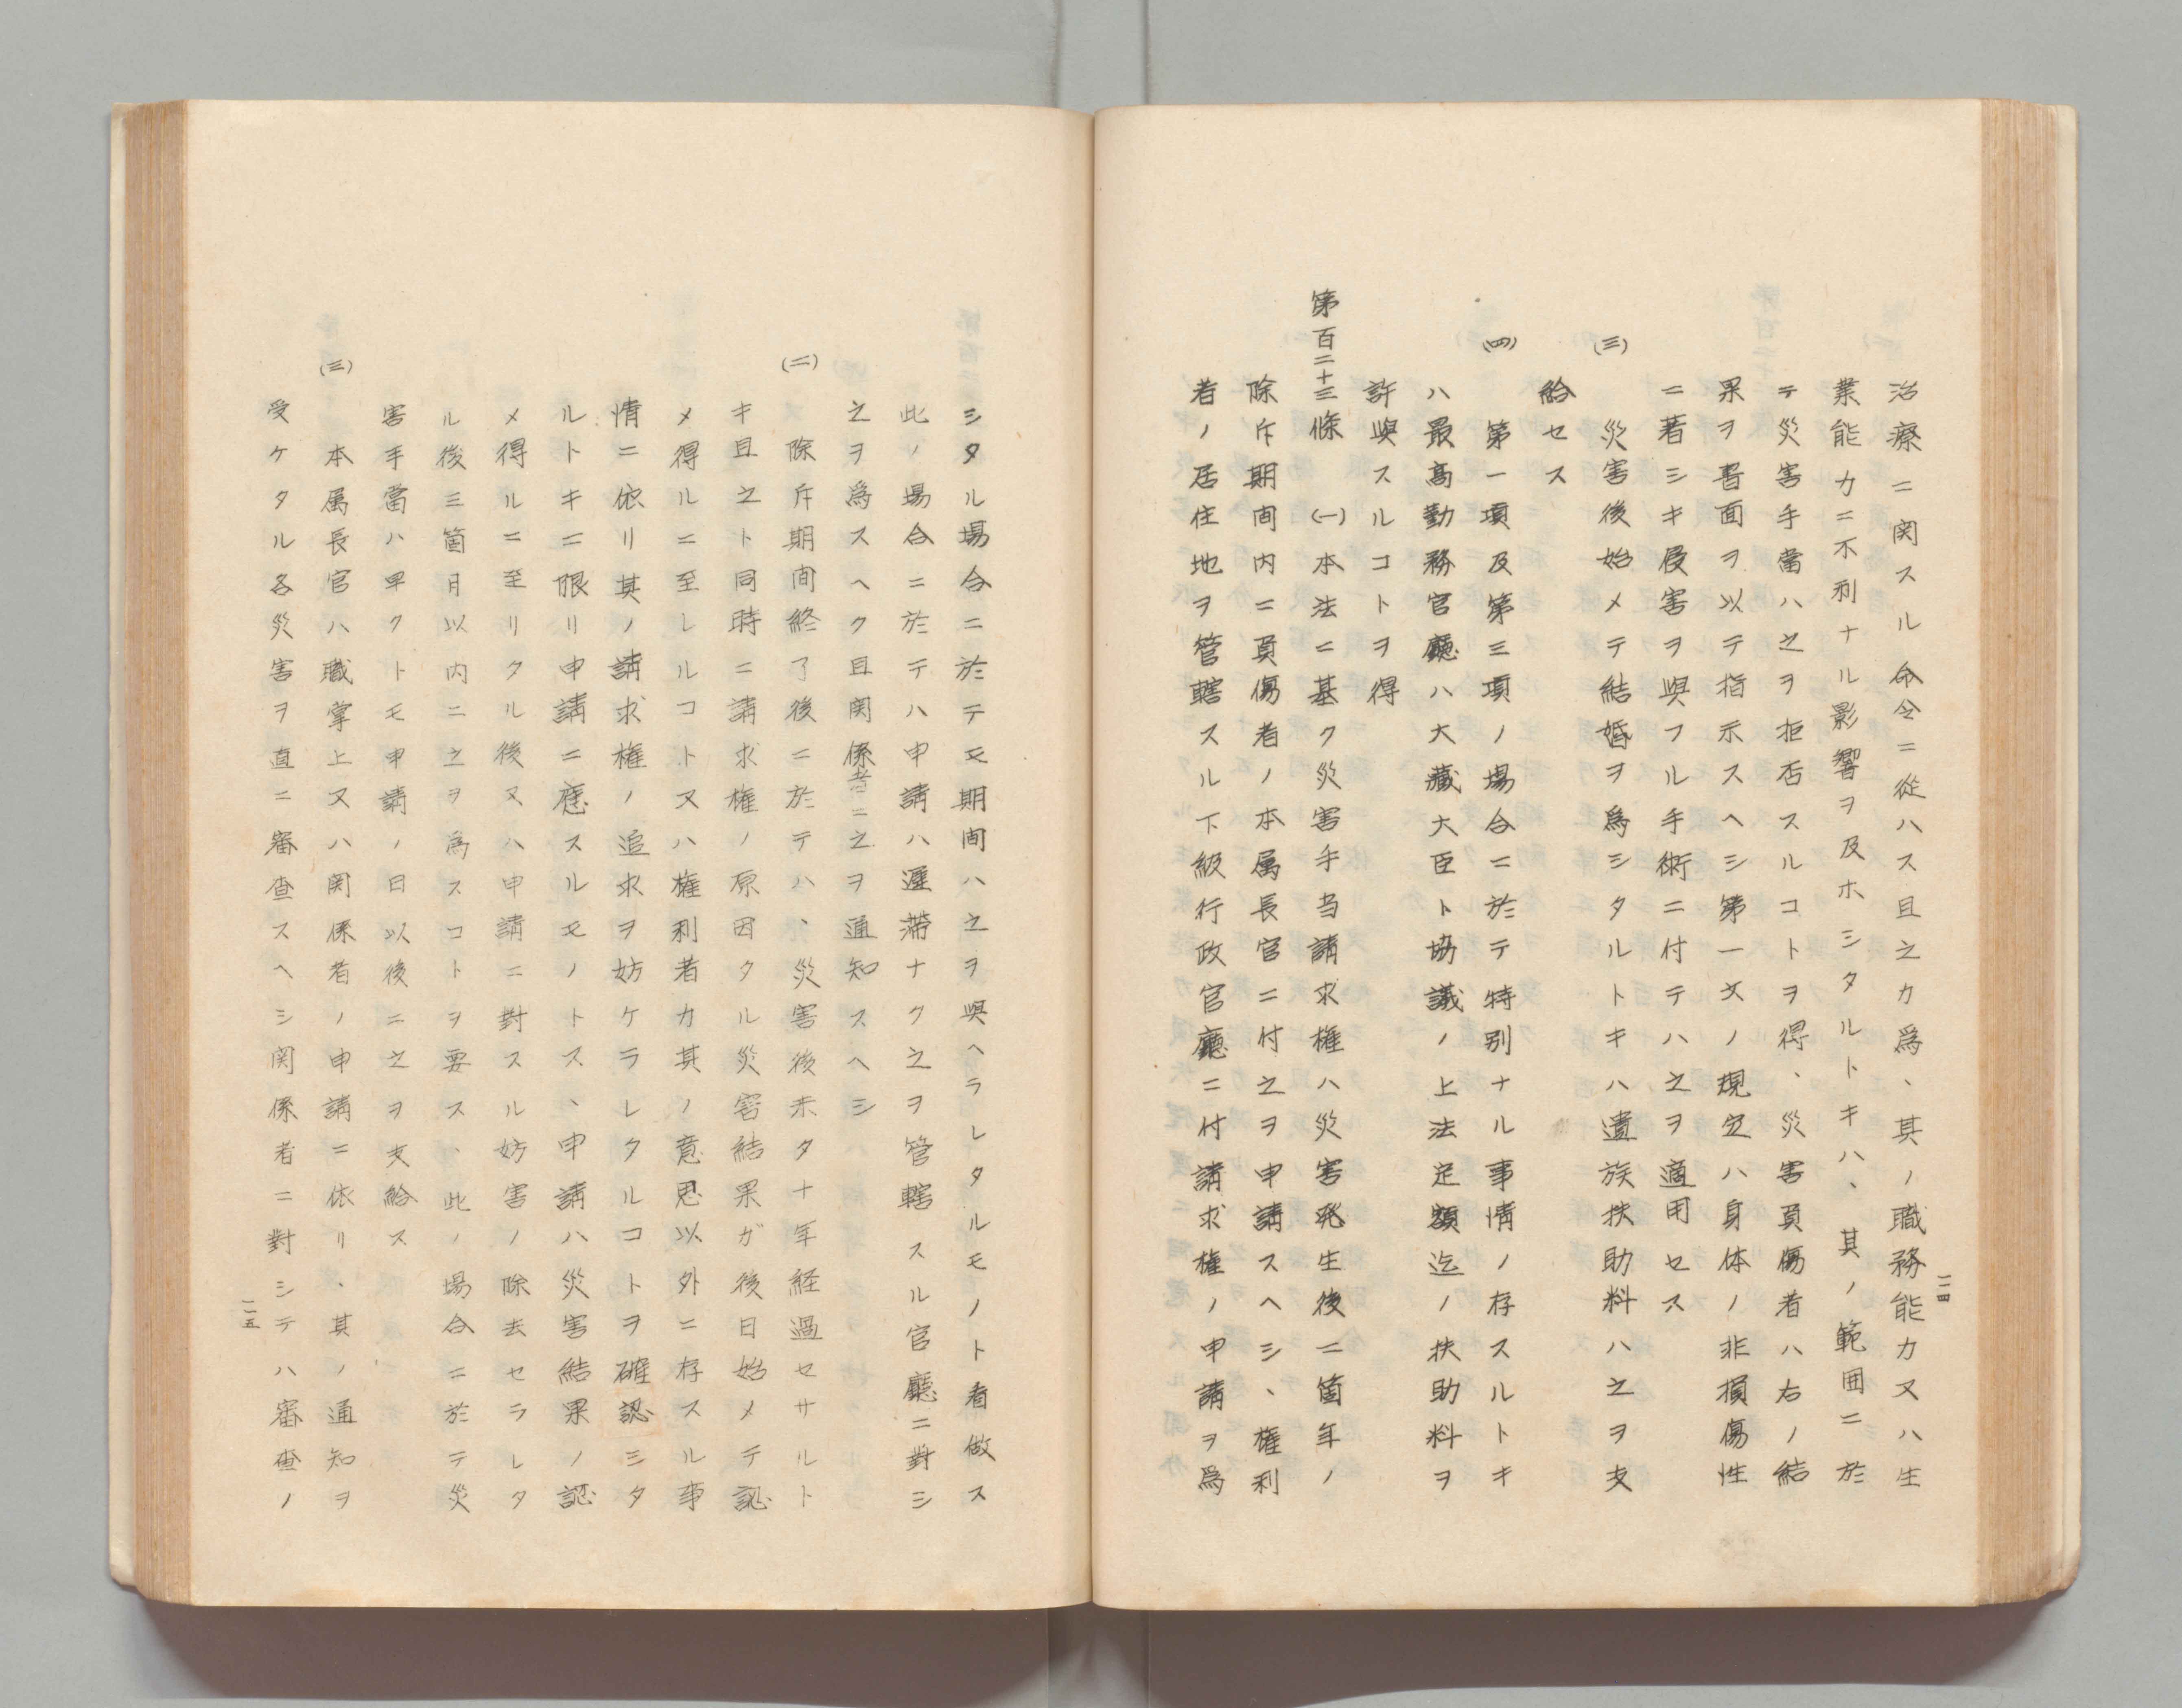 治療ニ関スル命令ニ從ハス且之カ爲、其ノ職務能力又ハ生
業能力ニ不利ナル影響ヲ及ホシタルトキハ、其ノ範囲ニ於
テ災害手當ハ之ヲ拒否スルコトヲ得、災害負傷者ハ右ノ結
果ヲ書面ヲ以テ指示スヘシ第一文ノ規定ハ身体ノ非損傷性
ニ著シキ侵害ヲ與フル手術ニ付テハ之ヲ適用セス
(三) 災害後始メテ結婚ヲ爲シタルトキハ遺族扶助料ハ之ヲ支
給セス
(四) 第一項及第三項ノ場合ニ於テ特別ナル事情ノ存スルトキ
ハ最高勤務官廳ハ大藏大臣ト協議ノ上法定額迄ノ扶助料ヲ
許與スルコトヲ得
第百二十三條 (一)本法ニ基ク災害手当請求権ハ災害発生後二箇年ノ
除斥期間内ニ負傷者ノ本属長官ニ付之ヲ申請スヘシ、権利
者ノ居住地ヲ管轄スル下級行政官廳ニ付請求権ノ申請ヲ爲
一一四
シタル場合ニ於テモ期間ハ之ヲ與ヘラレタルモノト看做ス
此ノ場合ニ於テハ申請ハ遲滞ナク之ヲ管轄スル官廳ニ對シ
之ヲ爲スヘク且関係者ニ之ヲ通知スヘシ
(二) 除斥期間終了後ニ於テハ、災害後未タ十年経過セサルト
キ且之ト同時ニ請求権ノ原因タル災害結果ガ後日始メテ認
メ得ルニ至レルコト又ハ権利者カ其ノ意思以外ニ存スル事
情ニ依リ其ノ請求権ノ追求ヲ妨ケラレタルコトヲ確認シタ
ルトキニ限リ申請ニ應スルモノトス、申請ハ災害結果ノ認
メ得ルニ至リタル後又ハ申請ニ對スル妨害ノ除去セラレタ
ル後三箇月以内ニ之ヲ爲スコトヲ要ス、此ノ場合ニ於テ災
害手當ハ早クトモ申請ノ日以後ニ之ヲ支給ス
(三) 本属長官ハ職掌上又ハ関係者ノ申請ニ依リ、其ノ通知ヲ
受ケタル各災害ヲ直ニ審査スヘシ関係者ニ對シテハ審査ノ
一一五